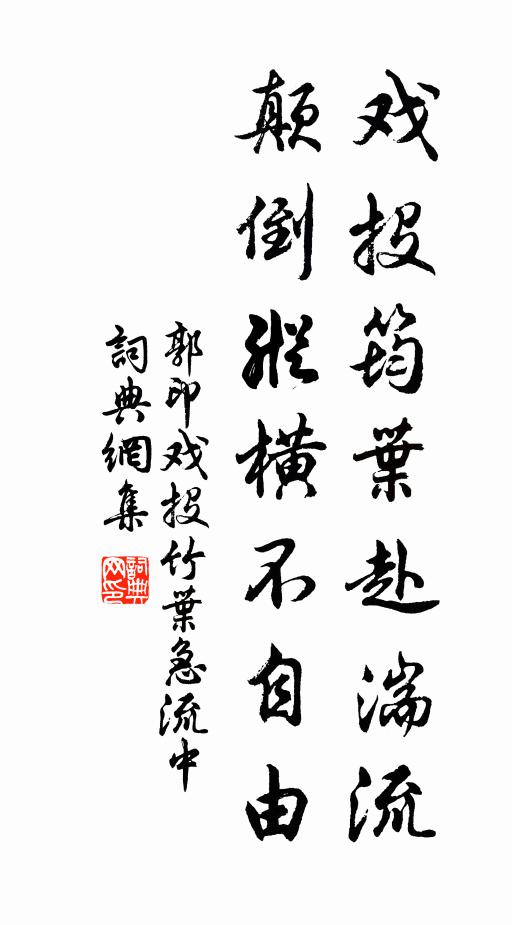 戏投筠葉赴湍流
颠倒縱橫不自由
郭印戏投竹葉急流中
詞典網集
詞典網印